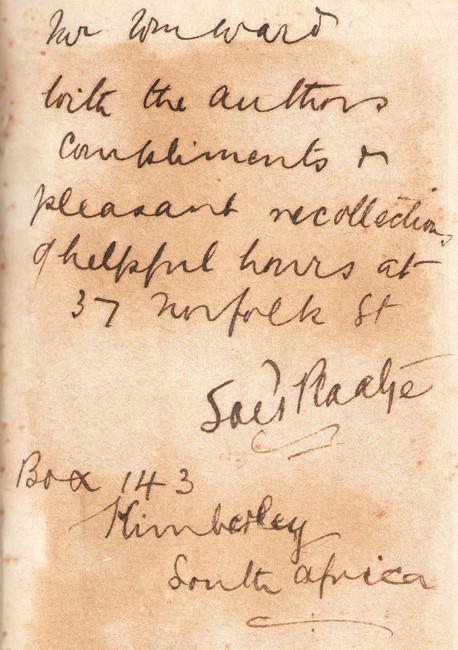 Mr Wm Ward
With the authors
Compliments &
pleasant recollections
of helpful hours at
37 Norfolk St
Sol T Plaatje
Box 143
Kimberley
South Africa